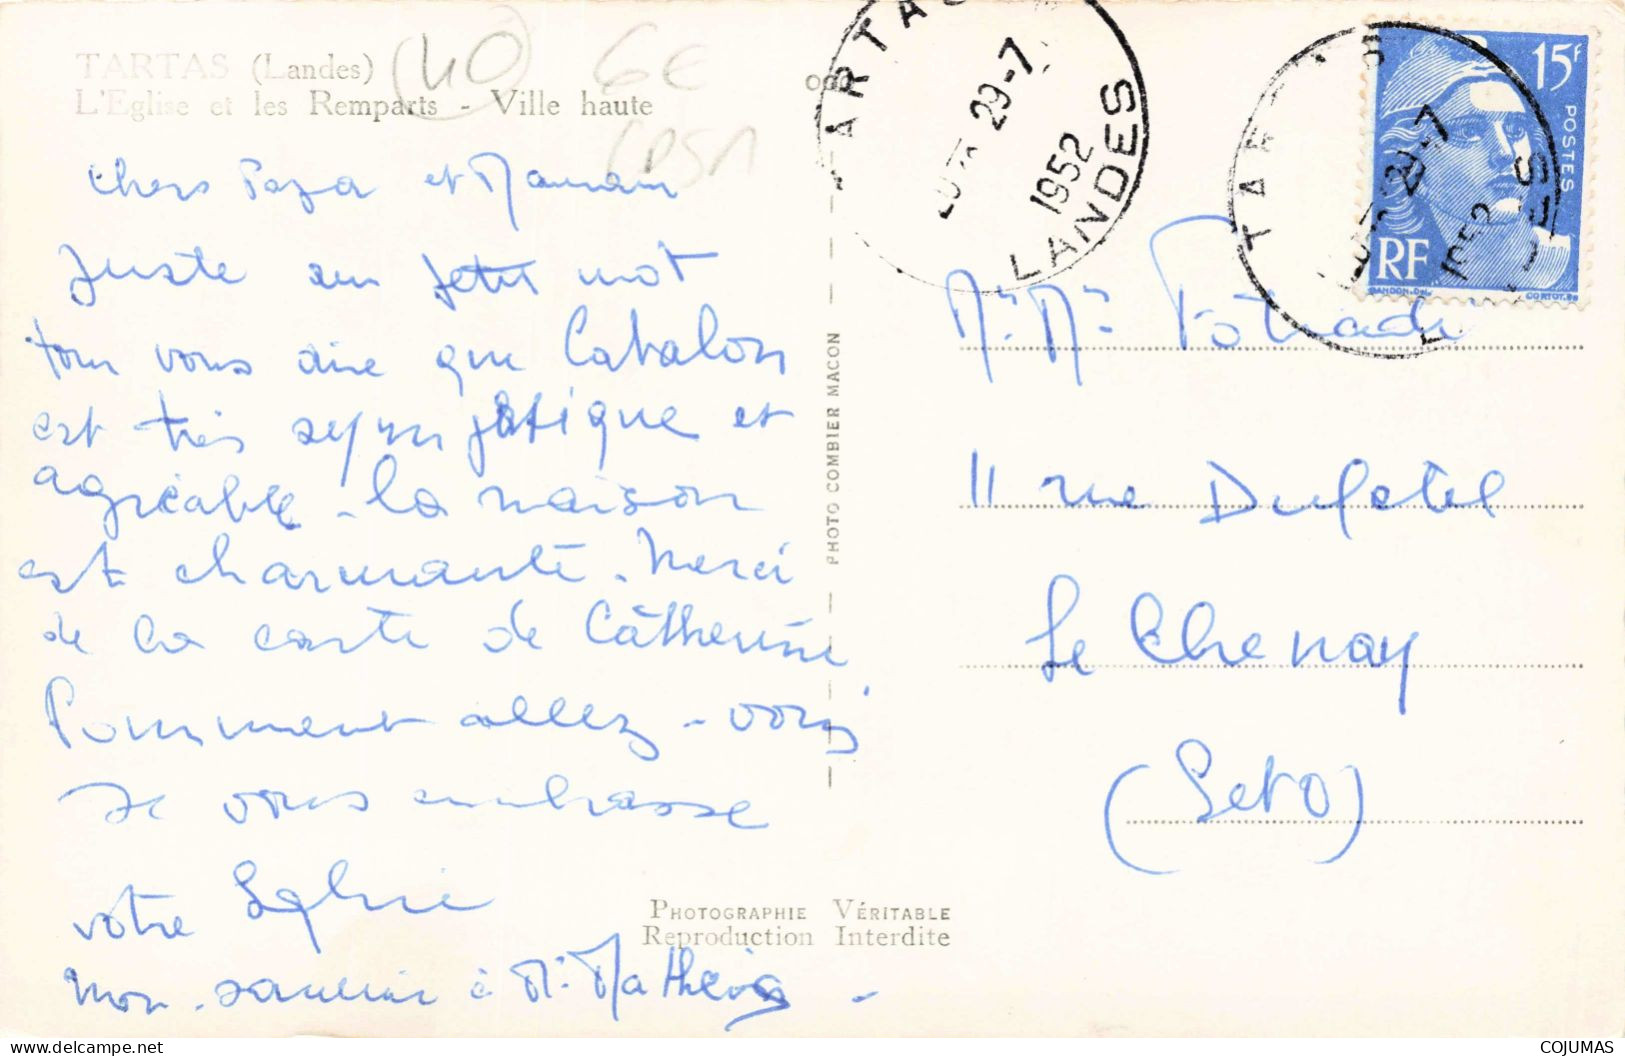 TARTAS (Landes)
L'Eglise et les Remparts - Ville haute
40
6€
CPSM
chers Papa et Maman
Juste un petit mot
pour vous dire que Cabalon
est très sympathique et
agréable - la maison
est charmante. Merci
de la carte de Catherine
Comment allez-vous
Je vous embrasse
votre Sylvie
mon souvenir à M.
PHOTO COMBIER MACON
PHOTOGRAPHIE VÉRITABLE
Reproduction Interdite
TARTAS
29-7
1952
LANDES
TARTAS
29-7
1952
LANDES
15F
POSTES
RF
GANDON.Del
CORTOT.sc
Mr. Mme
11 rue
Le Chenay
(Set O)
COJUMAS